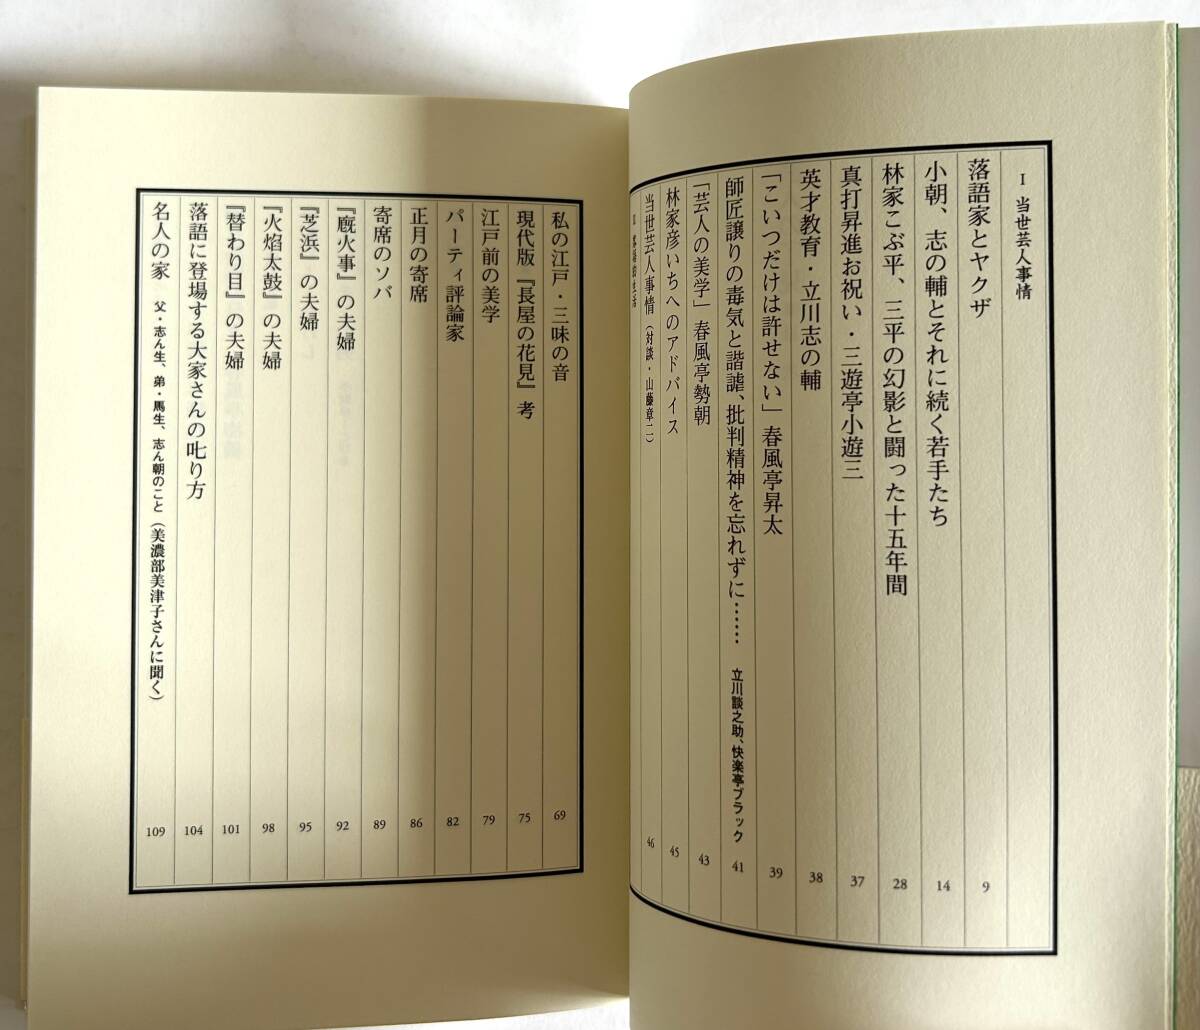 I 当世芸人事情
落語家とヤクザ 9
小朝、志の輔とそれに続く若手たち 14
林家こぶ平、三平の幻影と闘った十五年間 28
真打昇進お祝い・三遊亭小遊三 37
英才教育・立川志の輔 38
「こいつだけは許せない」春風亭昇太 39
師匠譲りの毒気と諧謔、批判精神を忘れずに…… 立川談之助、快楽亭ブラック 41
「芸人の美学」春風亭勢朝 43
林家彦いちへのアドバイス 45
当世芸人事情(対談・山藤章二) 46
II 落語的生活
私の江戸・三味の音 69
現代版『長屋の花見』考 75
江戸前の美学 79
パーティ評論家 82
正月の寄席 86
寄席のソバ 89
『厩火事』の夫婦 92
『芝浜』の夫婦 95
『火焰太鼓』の夫婦 98
『替わり目』の夫婦 101
落語に登場する大家さんの叱り方 104
名人の家 父・志ん生、弟・馬生、志ん朝のこと(美濃部美津子さんに聞く) 109